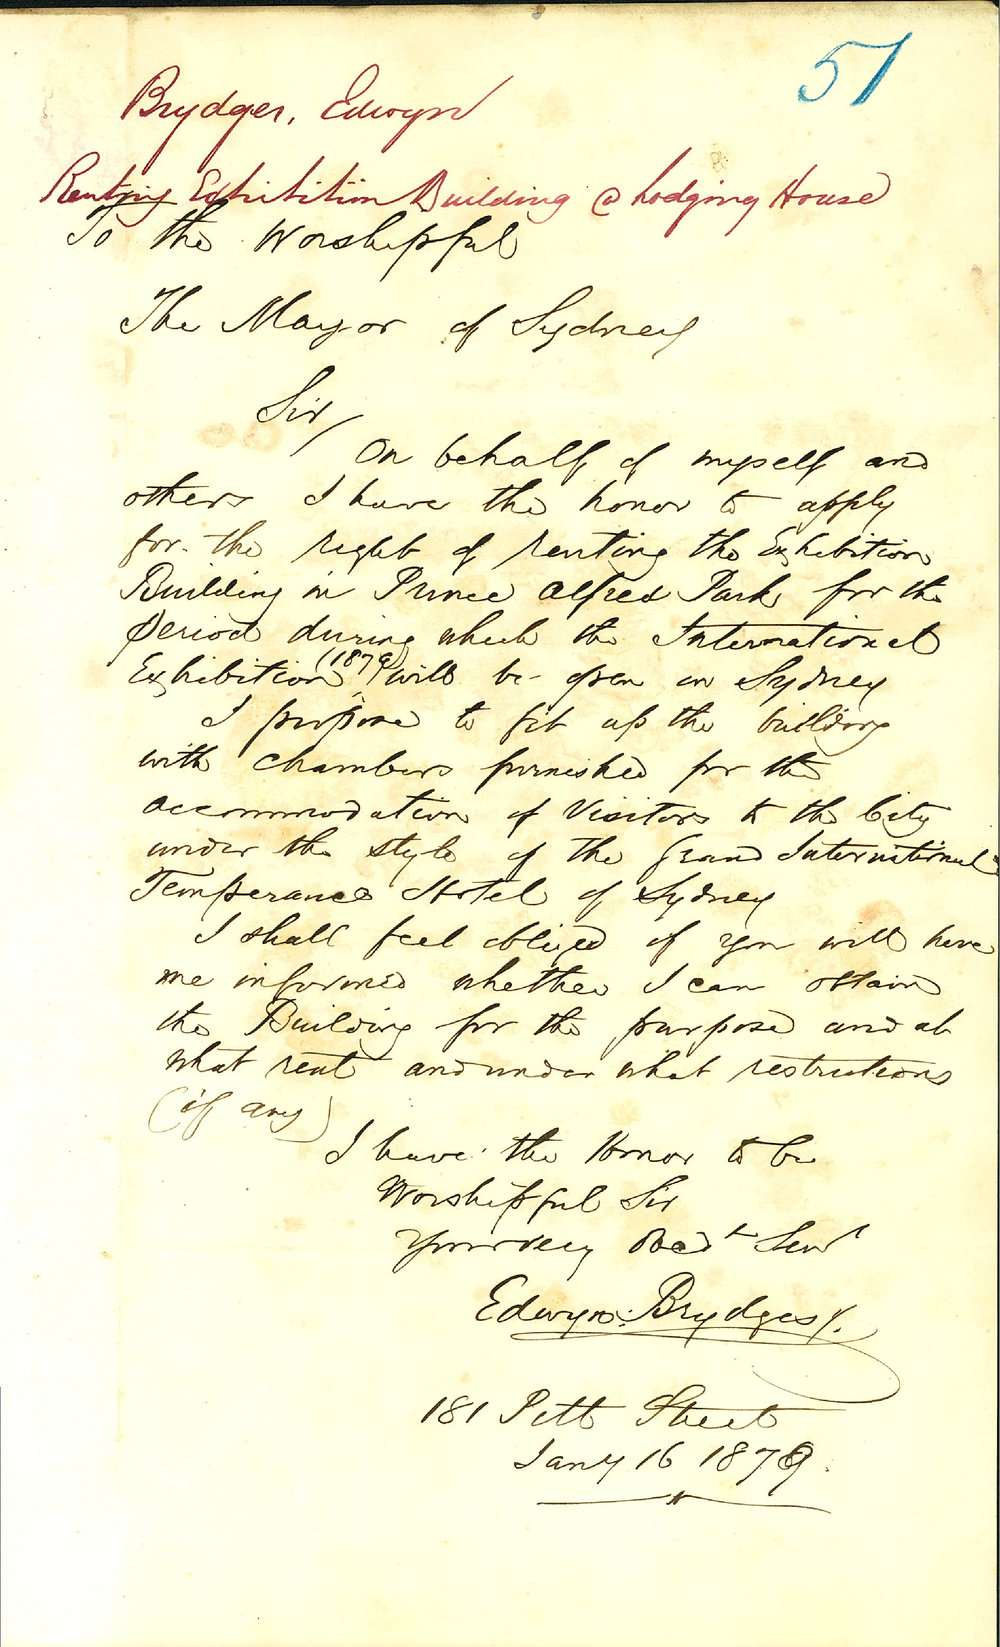 57
Brydges, Edwyn
Renting Exhibition Building @ Lodging House
To the Worshipful
The Mayor of Sydney
Sir/
On behalf of myself and
others I have the honor to apply
for the right of renting the Exhibition
Building in Prince Alfred Park for the
period during which the International
Exhibition (1879) will be open in Sydney
I propose to fit up the building
with chambers furnished for the
accommodation of Visitors to the City
under the style of the Grand International
Temperance Hotel of Sydney
I shall feel obliged if you will have
me informed whether I can obtain
the Building for the purpose and at
what rent and under what restrictions
(if any)
I have the Honor to be
Worshipful Sir
Your very Obedt Servt
Edwyn Brydges
181 Pitt Street
Jany 16 1879